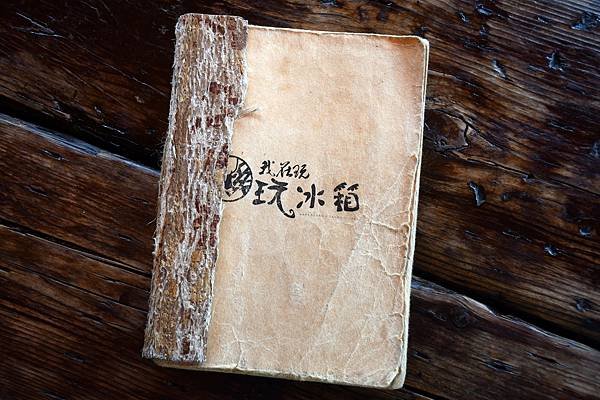 我在玩
玩冰箱